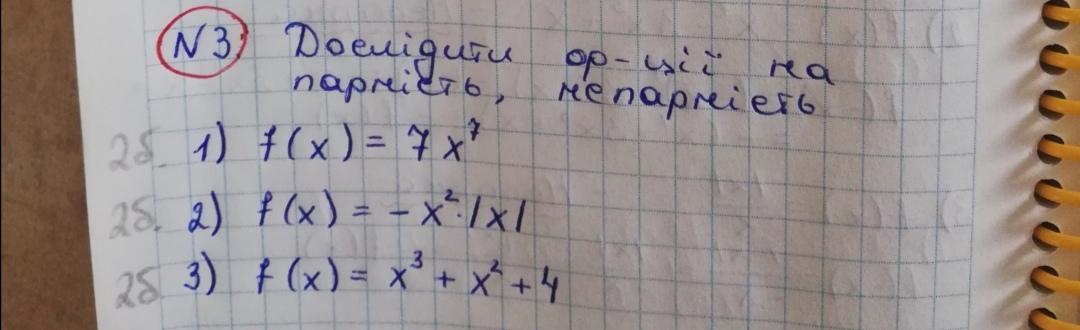 N3 Дослідити ф-ції на
парність, непарність
2б. 1) f(x) = 7x⁷
2б. 2) f(x) = -x²·|x|
2б 3) f(x) = x³ + x² + 4